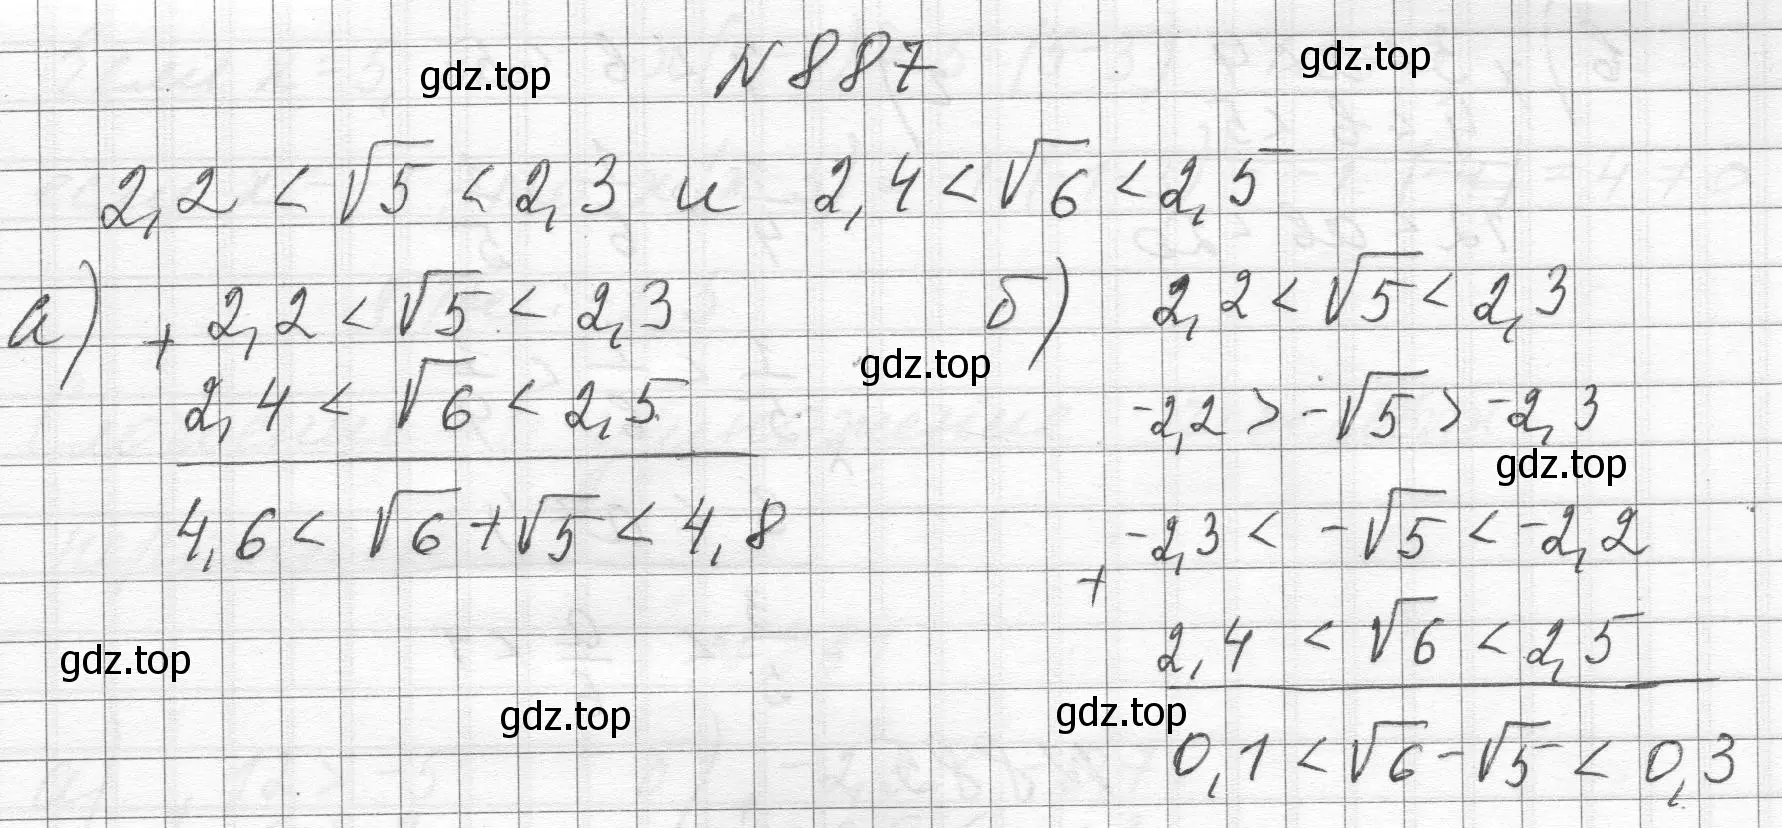 N 887
2,2 < √5 < 2,3 и 2,4 < √6 < 2,5
а) + 2,2 < √5 < 2,3
2,4 < √6 < 2,5
4,6 < √6 + √5 < 4,8
б) 2,2 < √5 < 2,3
-2,2 > -√5 > -2,3
-2,3 < -√5 < -2,2
+
2,4 < √6 < 2,5
0,1 < √6 - √5 < 0,3
gdz.top
gdz.top
gdz.top
gdz.top
gdz.top
gdz.top
gdz.top